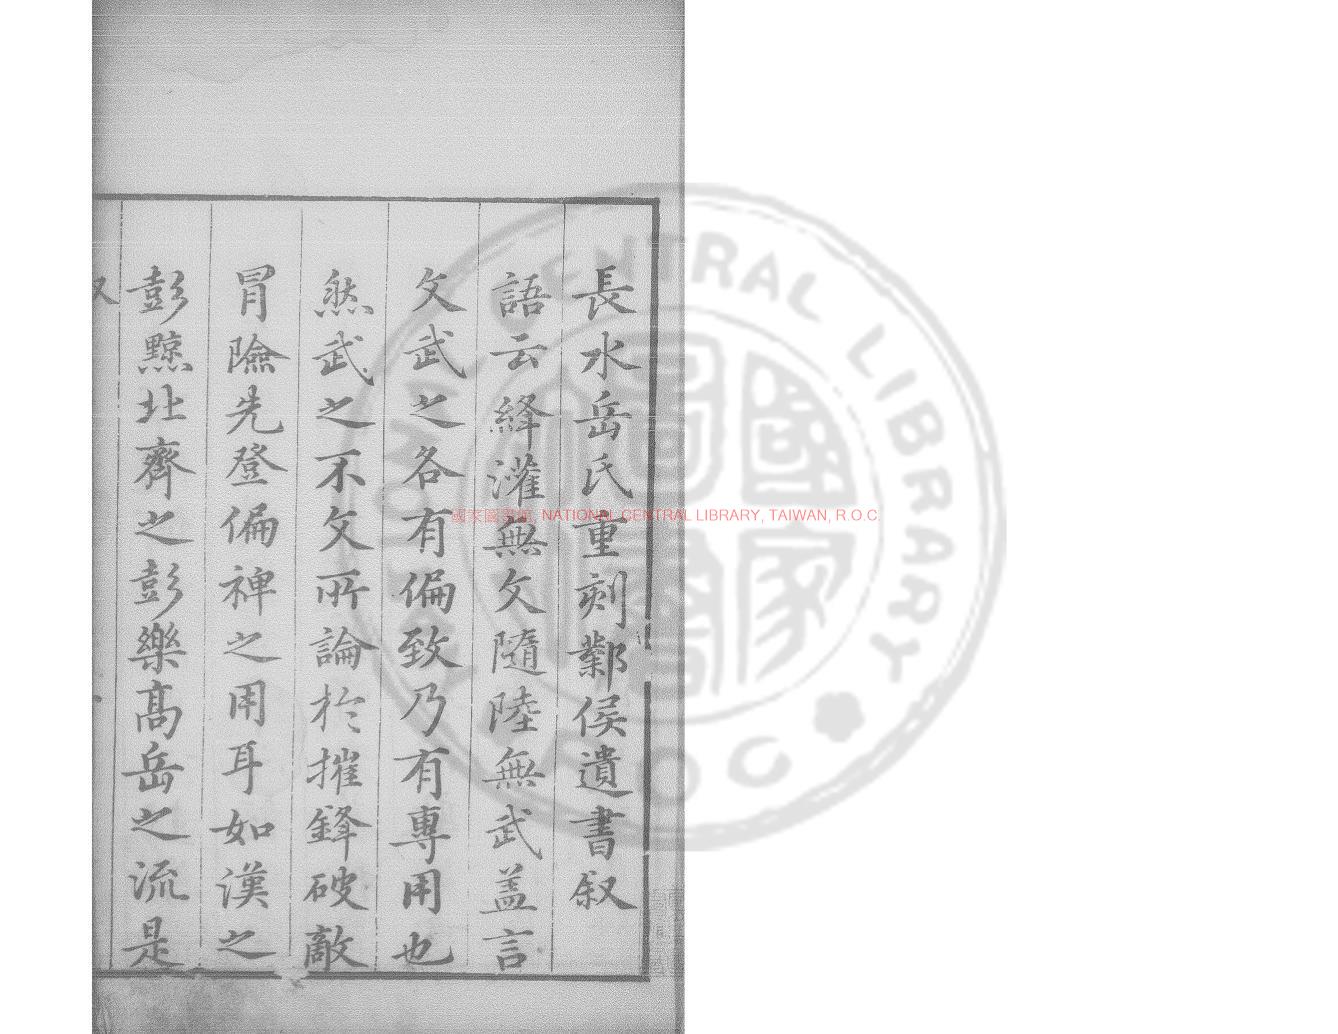 長水岳氏重刻鄴侯遺書叙
語云絳灌無文隨陸無武盖言
文武之各有偏致乃有專用也
然武之不文所論於摧鋒破敵
冐險先登偏裨之用耳如漢之
彭黥北齊之彭樂髙岳之流是
國家圖書館, NATIONAL CENTRAL LIBRARY, TAIWAN, R.O.C.